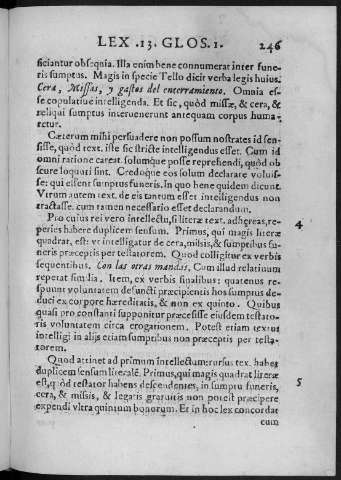 LEX .13. GLOS. 1.
246
ficiantur obsequia. Illa enim bene connumerat inter fune-
ris sumptus. Magis in specie Tello dicit verba legis huius.
Cera, Missas, y gastos del enterramiento. Omnia es-
se copulatiue intelligenda. Et sic, quòd missæ, & cera, &
reliqui sumptus interuenerunt antequam corpus huma-
retur.
Cæterum mihi persuadere non possum nostrates id sen-
sisse, quòd text. iste sic stricte intelligendus esset. Cum id
omni ratione careat. solumque posse reprehendi, quòd ob
scure loquuti sint. Credoque eos solum declarare voluis-
se: qui essent sumptus funeris. In quo bene quidem dicunt.
Vtrum autem text. de eis tantum esset intelligendus non
tractasse. cum tamen necessario esset declarandum.
Pro cuius rei vero intellectu, si literæ text. adhæreas, re-
peries habere duplicem sensum. Primus, qui magis literæ
quadrat, est: vt intelligatur de cera, missis, & sumptibus fu-
neris præceptis per testatorem. Quod colligitur ex verbis
sequentibus. Con las otras mandas. Cum illud relatiuum
repetat similia. Item, ex verbis finalibus: quatenus re-
spuunt voluntatem defuncti præcipientis hos sumptus de-
duci ex corpore hæreditatis, & non ex quinto. Quibus
quasi pro constanti supponitur præcessisse eiusdem testato-
ris voluntatem circa erogationem. Potest etiam textus
intelligi in alijs etiam sumptibus non præceptis per testa-
torem.
4
Quod attinet ad primum intellectum: rursus tex. habet
duplicem sensum literalē. Primus, qui magis quadrat literæ
est, quòd testator habens descendentes, in sumptu funeris,
cera, & missis, & legatis gratuitis non potest præcipere
expendi vltra quintum bonorum. Et in hoc lex concordat
5
cum